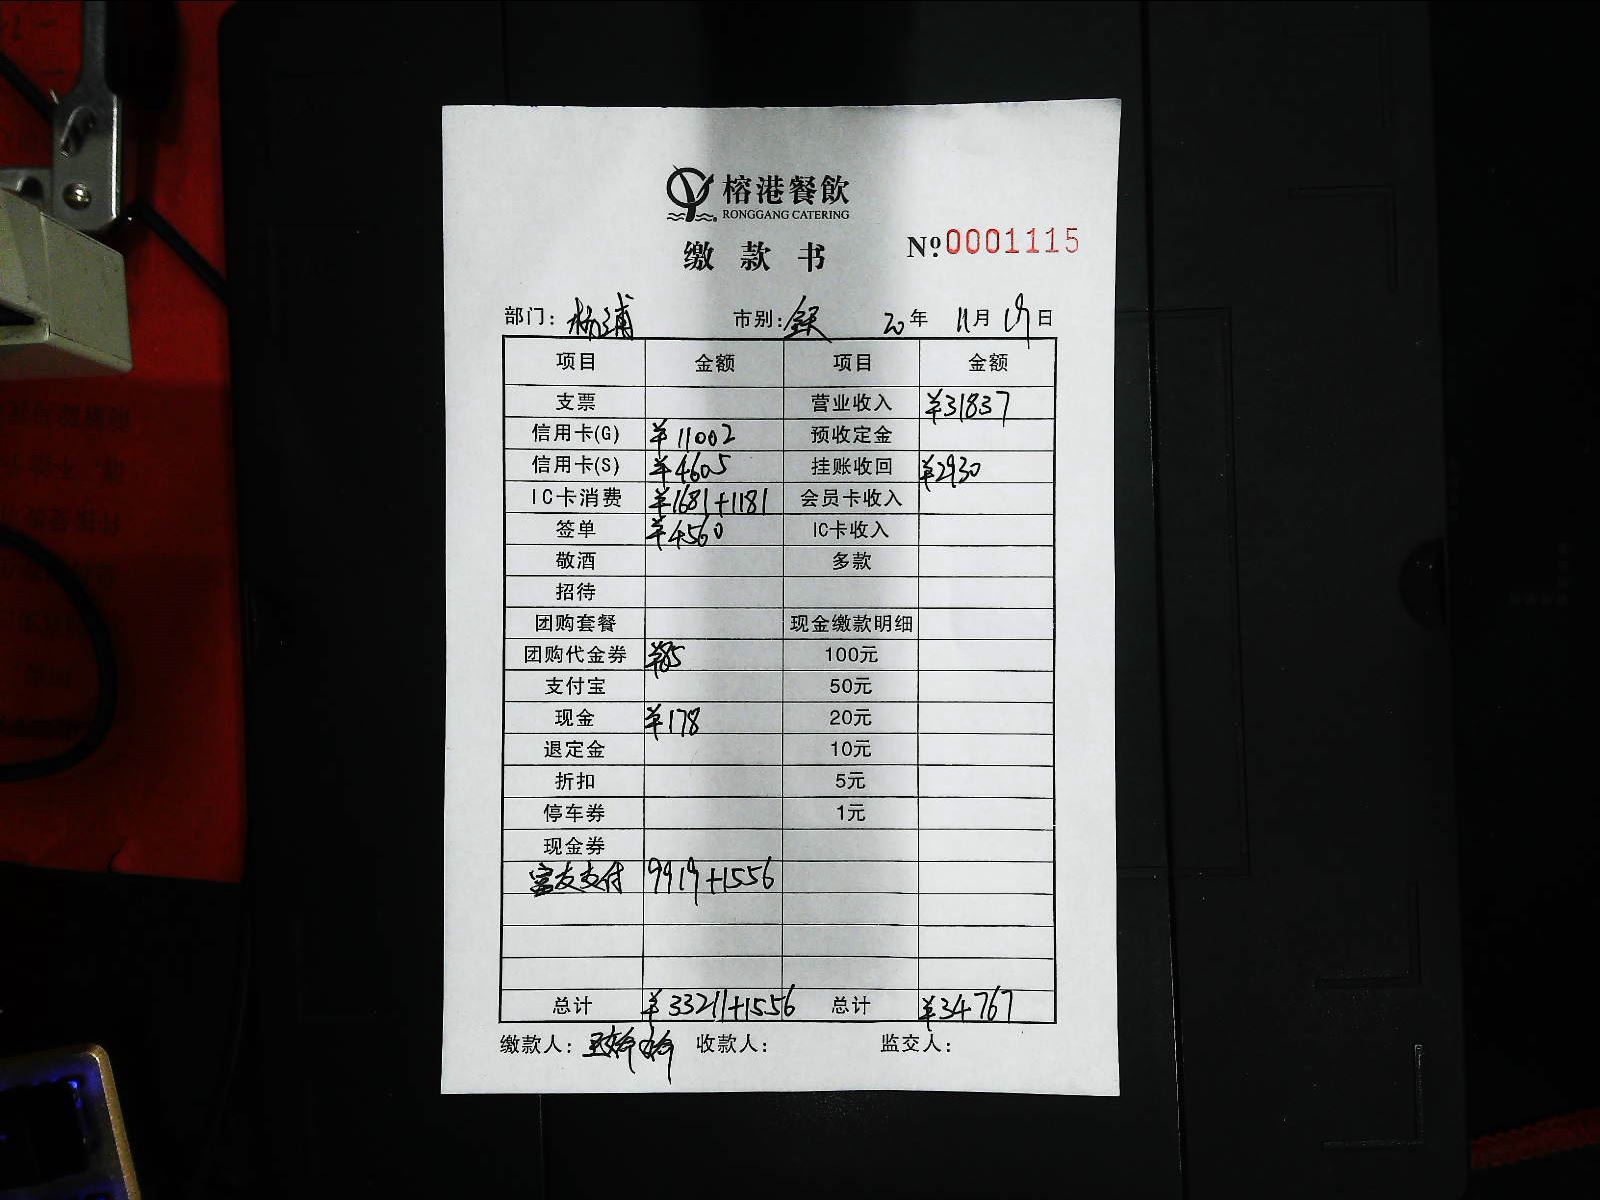 榕港餐飲
RONGGANG CATERING
缴款书
№0001115
部门：杨浦 市别： 20年 11月 19日
项目 金额 项目 金额
支票 营业收入 ¥31837
信用卡(G) ¥11002 预收定金
信用卡(S) ¥4605 挂账收回 ¥2930
IC卡消费 ¥1681+1181 会员卡收入
签单 ¥4560 IC卡收入
敬酒 多款
招待
团购套餐 现金缴款明细
团购代金券 ¥85 100元
支付宝 50元
现金 ¥178 20元
退定金 10元
折扣 5元
停车券 1元
现金券
富友支付 9919+1556
总计 ¥33211+1556 总计 ¥34767
缴款人：王婷婷 收款人： 监交人：